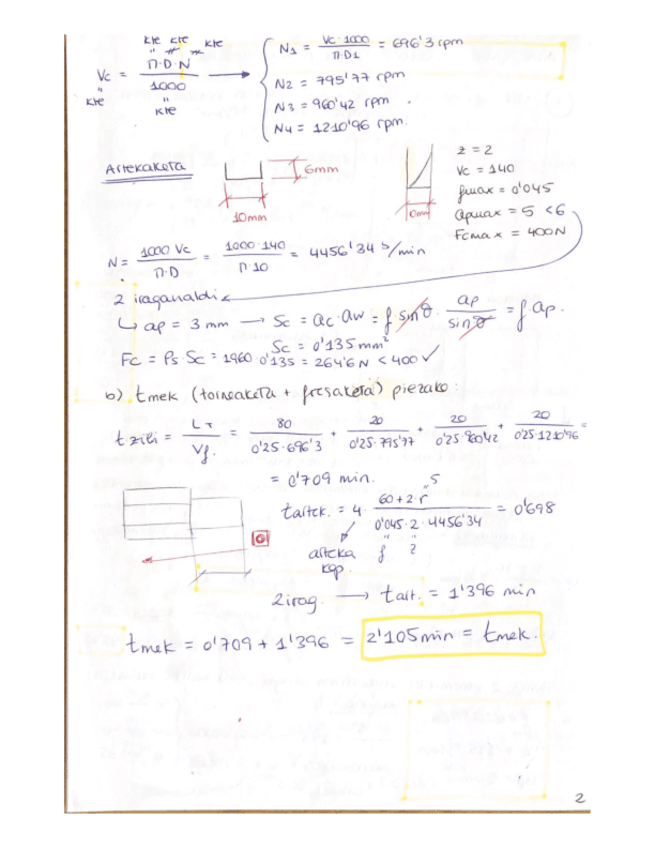 kte kte kte
Vc = Π·D·N / 1000 → N1 = Vc·1000 / Π·D1 = 696'3 rpm
kte kte
N2 = 795'77 rpm
N3 = 960'42 rpm.
N4 = 1210'96 rpm.
Artekaketa
6mm
10mm
10mm
z = 2
Vc = 140
fmax = 0'045
apmax = 5 < 6
Fcmax = 400N
N = 1000 Vc / Π·D = 1000·140 / Π·10 = 4456'34 b/min
2 iraganaldi
↳ ap = 3 mm → Sc = ac·aw = f·sinθ · ap / sinθ = f·ap.
Sc = 0'135 mm²
Fc = Ps·Sc = 1960·0'135 = 264'6 N < 400 ✓
b) tmek (torneaketa + fresaketa) piezako:
t zili = LT / Vf. = 80 / 0'25·696'3 + 20 / 0'25·795'77 + 20 / 0'25·960'42 + 20 / 0'25·1210'96 =
= 0'709 min.
5
tartek. = 4· 60+2·r / 0'045·2·4456'34 = 0'698
arteka kop.
f z
2 irag. → tart. = 1'396 min
tmek = 0'709 + 1'396 = 2'105 min = tmek.
2